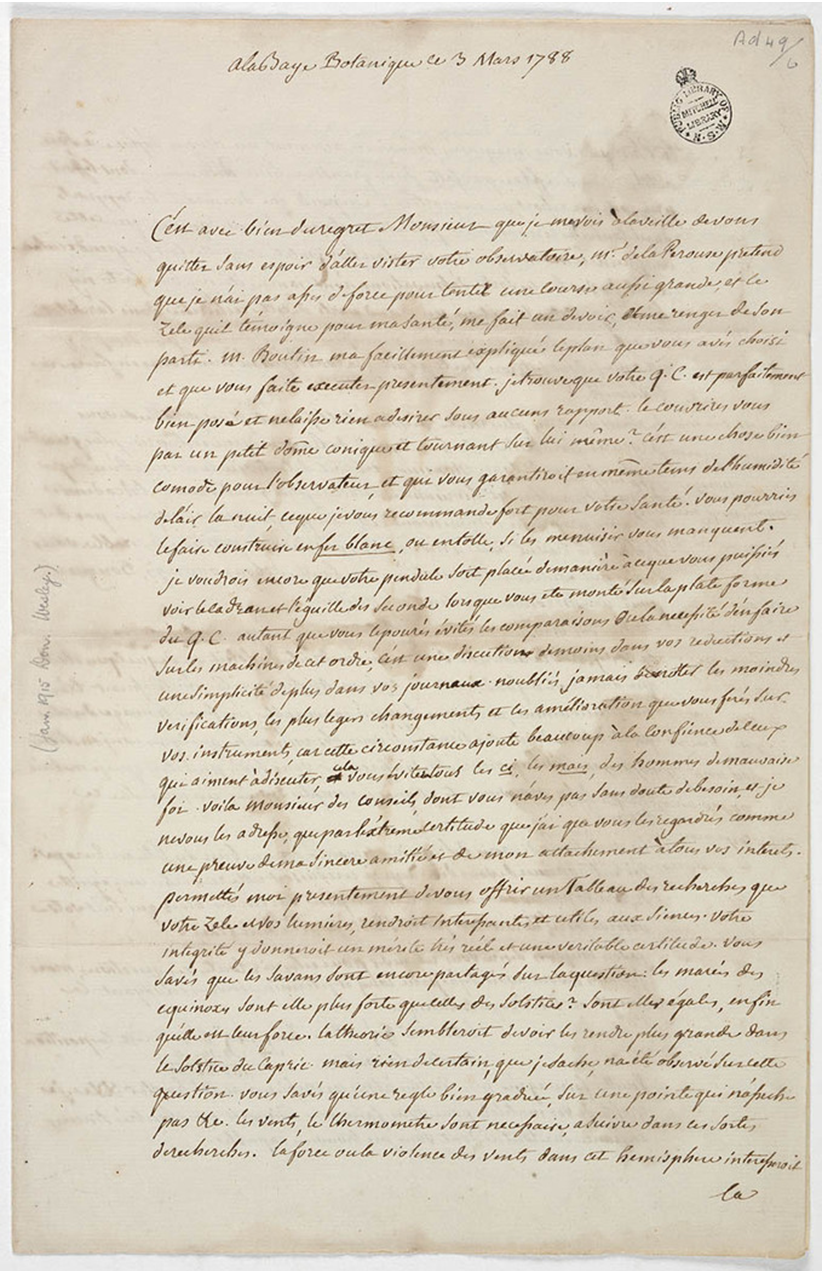 Ad 49/6
alabaye Botanique ce 3 Mars 1788
PUBLIC LIBRARY OF N.S.W.
MITCHELL LIBRARY
C'est avec bien duregret Monsieur que je mevois àlaveille devous
quitter sans espoir d'aller visiter votre observatoire, mr. dela Perouse pretend
que je n'ai pas assés deforce pour tenter une course aussi grande, et le
Zele quil témoigne pour masanté, me fait un devoir, deme renger deson
parti. m. Boutin ma facillement expliqué leplan que vous avés choisi
et que vous faite executer presentement. jetrouve que votre Q.C. est parfaitement
bien posé et nelaisse rien adesirer sous aucuns rapport. le couvrires vous
par un petit dôme conique et tournant sur lui même? c'est une chose bien
comode pour l'observateur, et qui vous garantiroit en même tems del'humidité
delair la nuit, ceque jevous recommande fort pour votre santé. vous pourriés
lefaire construire enfer blanc, ou entolle, si les menuisier vous manquent.
je voudrois encore que votre pendule soit placé demanière àceque vous puissiés
voir lecadran et l'éguille des seconde lorsque vous ete monté sur laplate forme
du Q.C. autant que vous lepourés évités les comparaisons ou la necessité d'en faire
sur les machines decet ordre, c'est une discution demoins dans vos reductions et
une simplicité deplus dans vos journaux. noubliés jamais denoter les moindres
verifications, les plus legers changements et les amélioration que vous ferés sur
vos instruments, car cette circonstance ajoute beaucoup à la confience deceux
qui aiment àdiscuter, cela vous évitera tous les ci, les mais, des hommes demauvaise
foi. voila monsieur des conseils dont vous naves pas sans doute debesoin, et je
nevous les adresse, que par l'extreme certitude que j'ai que vous les regardrés comme
une preuve dema sincere amitié et de mon attachement àtous vos interets.
permettés moi presentement devous offrir un Tableau des recherches que
votre Zele et vos lumières, rendroit Interessantes et utiles aux siences. votre
integrité y donneroit un mérite très réel et une veritable certitude. vous
savés que les savans sont encore partagés sur laquestion. les marés des
equinoxes sont elle plus forte que celles des solstices? sont elles égales, enfin
quelle est leur force. la theorie sembleroit devoir les rendre plus grande dans
le solstice du Capric. mais rien decertain, que je sache, na été observé sur cette
question. vous savés qu'une regle bien graduée, sur une pointe qui n'asseche
pas &c. les vents, le thermometre sont necessaire, asuivre dans ces sortes
derecherches. laforce ou la violence des vents dans cet hemisphere interesseroit
la
(Jan. 1915 Don. Wesley.)